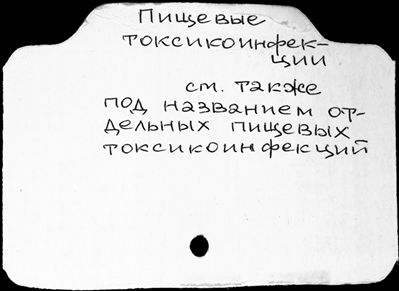 Пищевые
токсикоинфек-
ции
см. также
под названием от-
дельных пищевых
токсикоинфекций